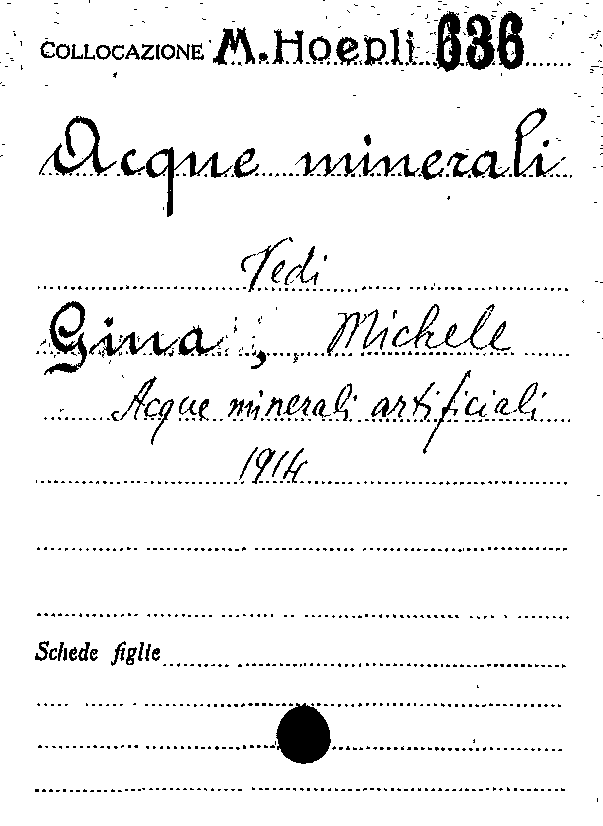 COLLOCAZIONE M.Hoepli 636
Acque minerali
Vedi
Giua, Michele
Acque minerali artificiali
1914
Schede figlie